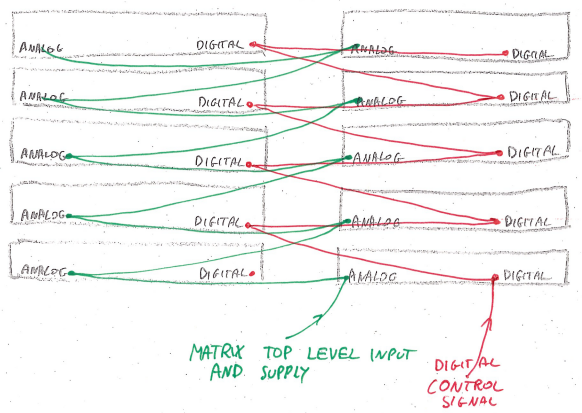 ANALOG DIGITAL ANALOG DIGITAL
ANALOG DIGITAL ANALOG DIGITAL
ANALOG DIGITAL ANALOG DIGITAL
ANALOG DIGITAL ANALOG DIGITAL
ANALOG DIGITAL ANALOG DIGITAL
MATRIX TOP LEVEL INPUT
AND SUPPLY
DIGITAL
CONTROL
SIGNAL